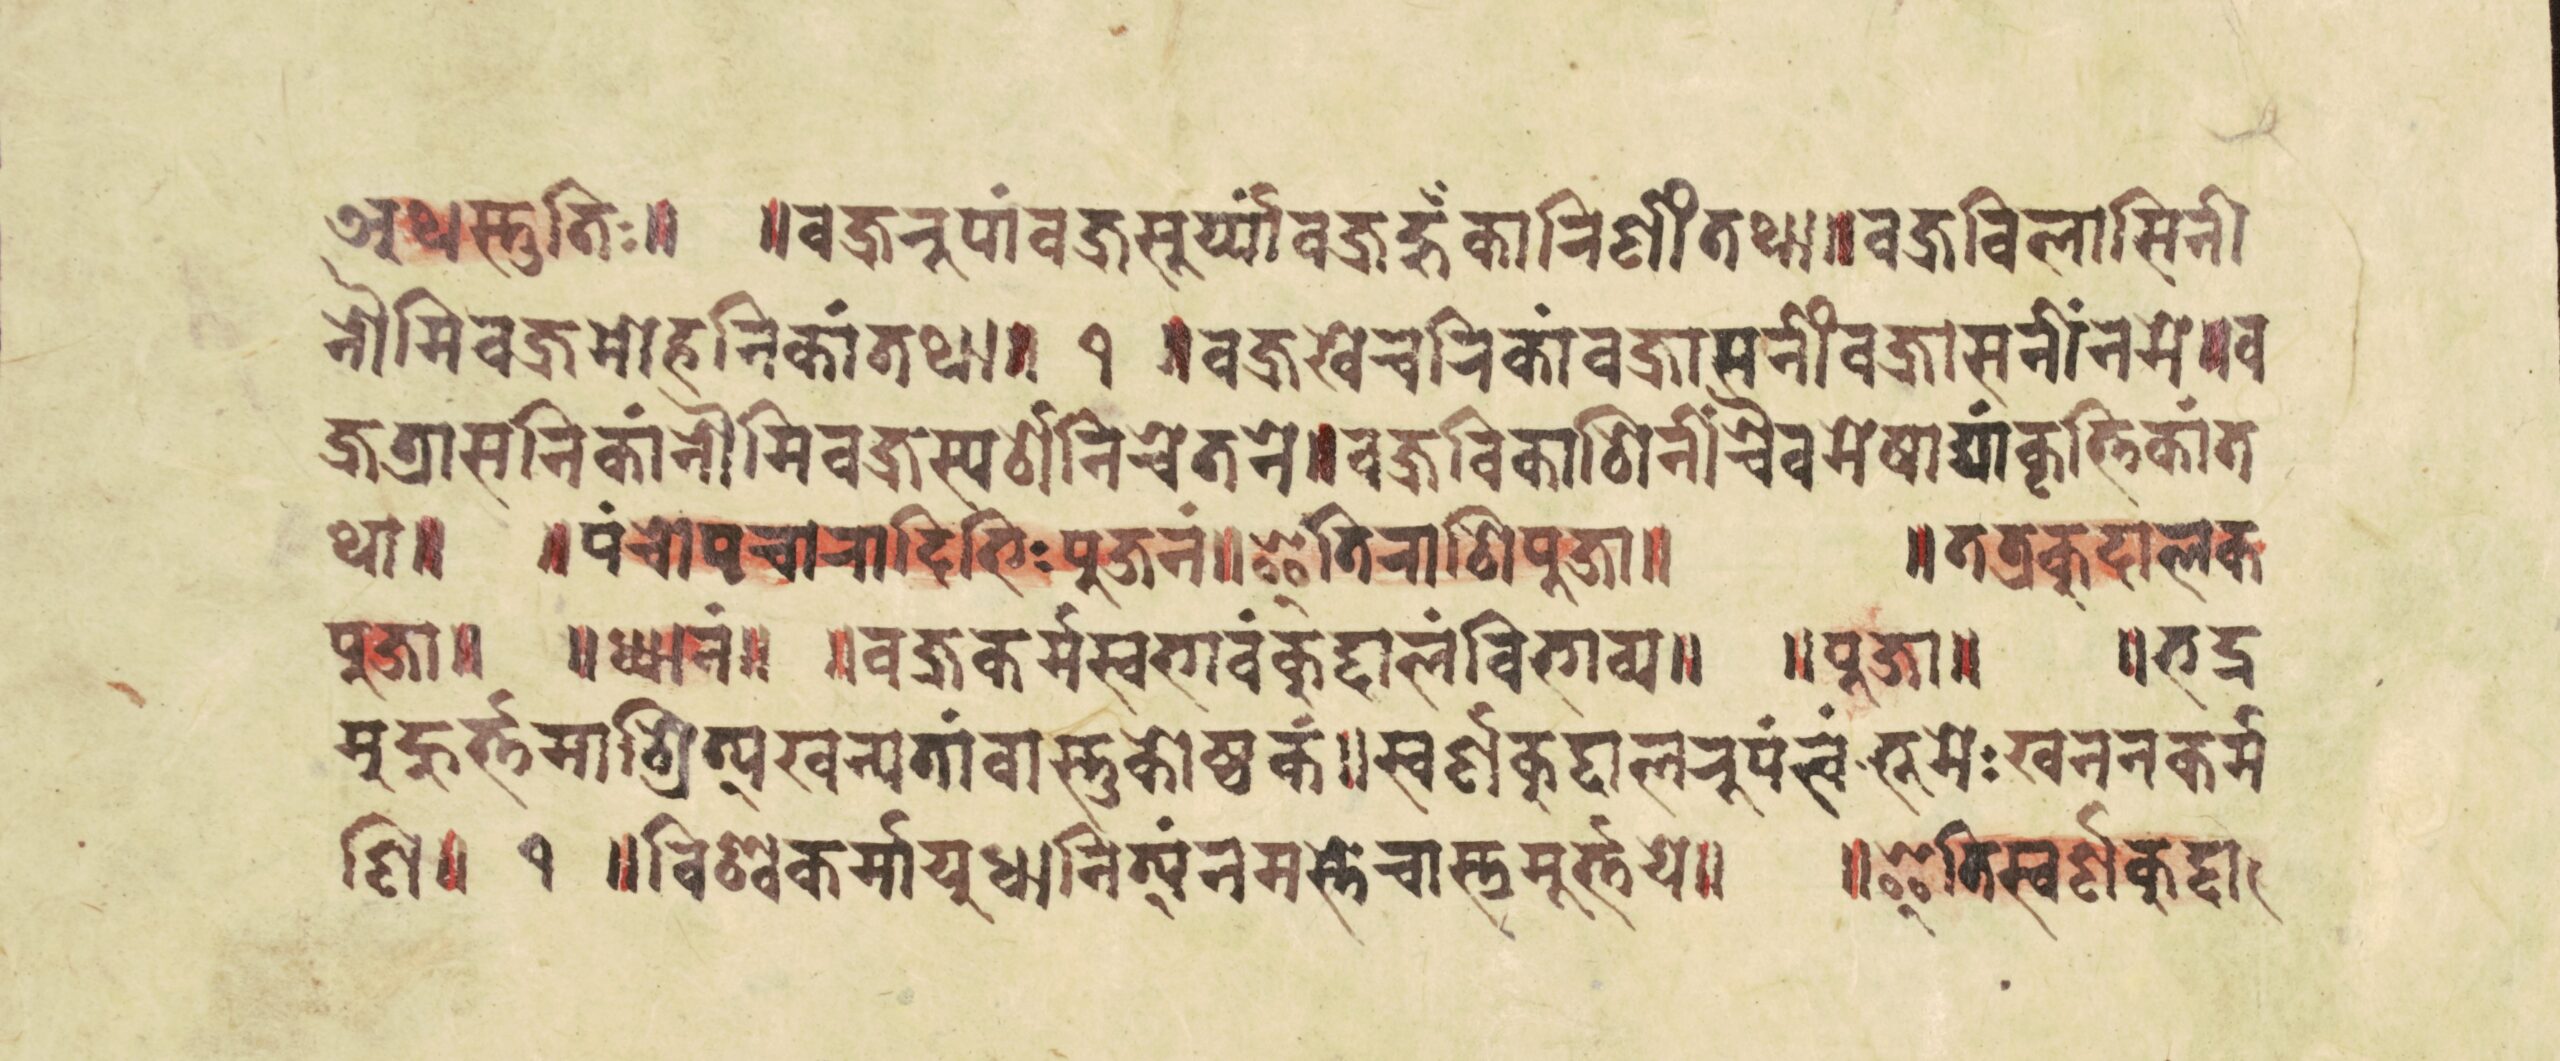 अथस्तुतिः॥ ॥वज्ररुपांवज्रसूर्य्यांवज्रहुँकारिणींतथा॥वज्रविलासिनी
नौमिवज्रमोहनिकांतथा॥ १ ॥वज्रखेचरिकांवज्रासनींवज्रासनींनमे॥व
ज्रत्रासनिकांनौमिवज्रस्पर्शांनिचेतने॥वज्रविकाशिनींचैवमेषाद्यांकृत्तिकांत
था॥ ॥पंचोपचारादिभिःपुजनं॥इतिराशिपुजा॥ ॥तत्रकुदालक
पुजा॥ ॥ध्यानं॥ ॥वज्रकर्मस्वभावंकुद्दालंविभाव्य॥ ॥पूजा॥ ॥भद्र
मुहुर्त्तमाश्रित्यखन्यतांवास्तुकोष्ठकं॥स्वर्णकुद्दालरुपंत्वंभूमेःखननकर्म
णि॥ १ ॥विश्वकर्मायुधनित्यंनमस्तेचास्तुमूर्त्तये॥ ॥इतिस्वर्णकुद्दा